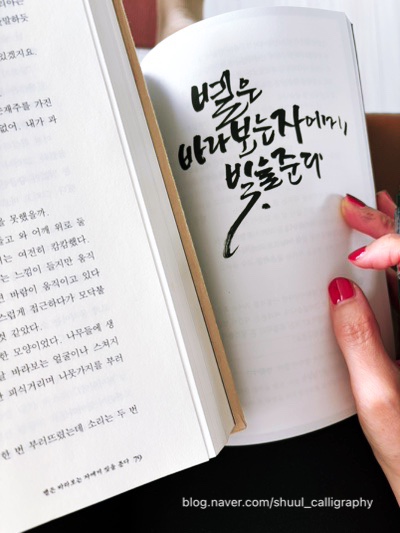 있겠지요.
은재주를 가진
없어. 내가 과
을 못했을까.
들고 와 어깨 위로 둘
는 여전히 캄캄했다.
는 느낌이 들지만 움직
바람이 움직이고 있다
스럽게 접근하다가 모닥불
것 같았다.
한 모양이었다. 나무들에 생
바라보는 얼굴이나 스쳐지
피식거리며 나뭇가지를 부러
한 번 부러뜨렸는데 소리는 두 번
별은 바라보는 자에게 빛을 준다 79
별은
바라보는 자에게,
빛을 준다
blog.naver.com/shuul_calligraphy